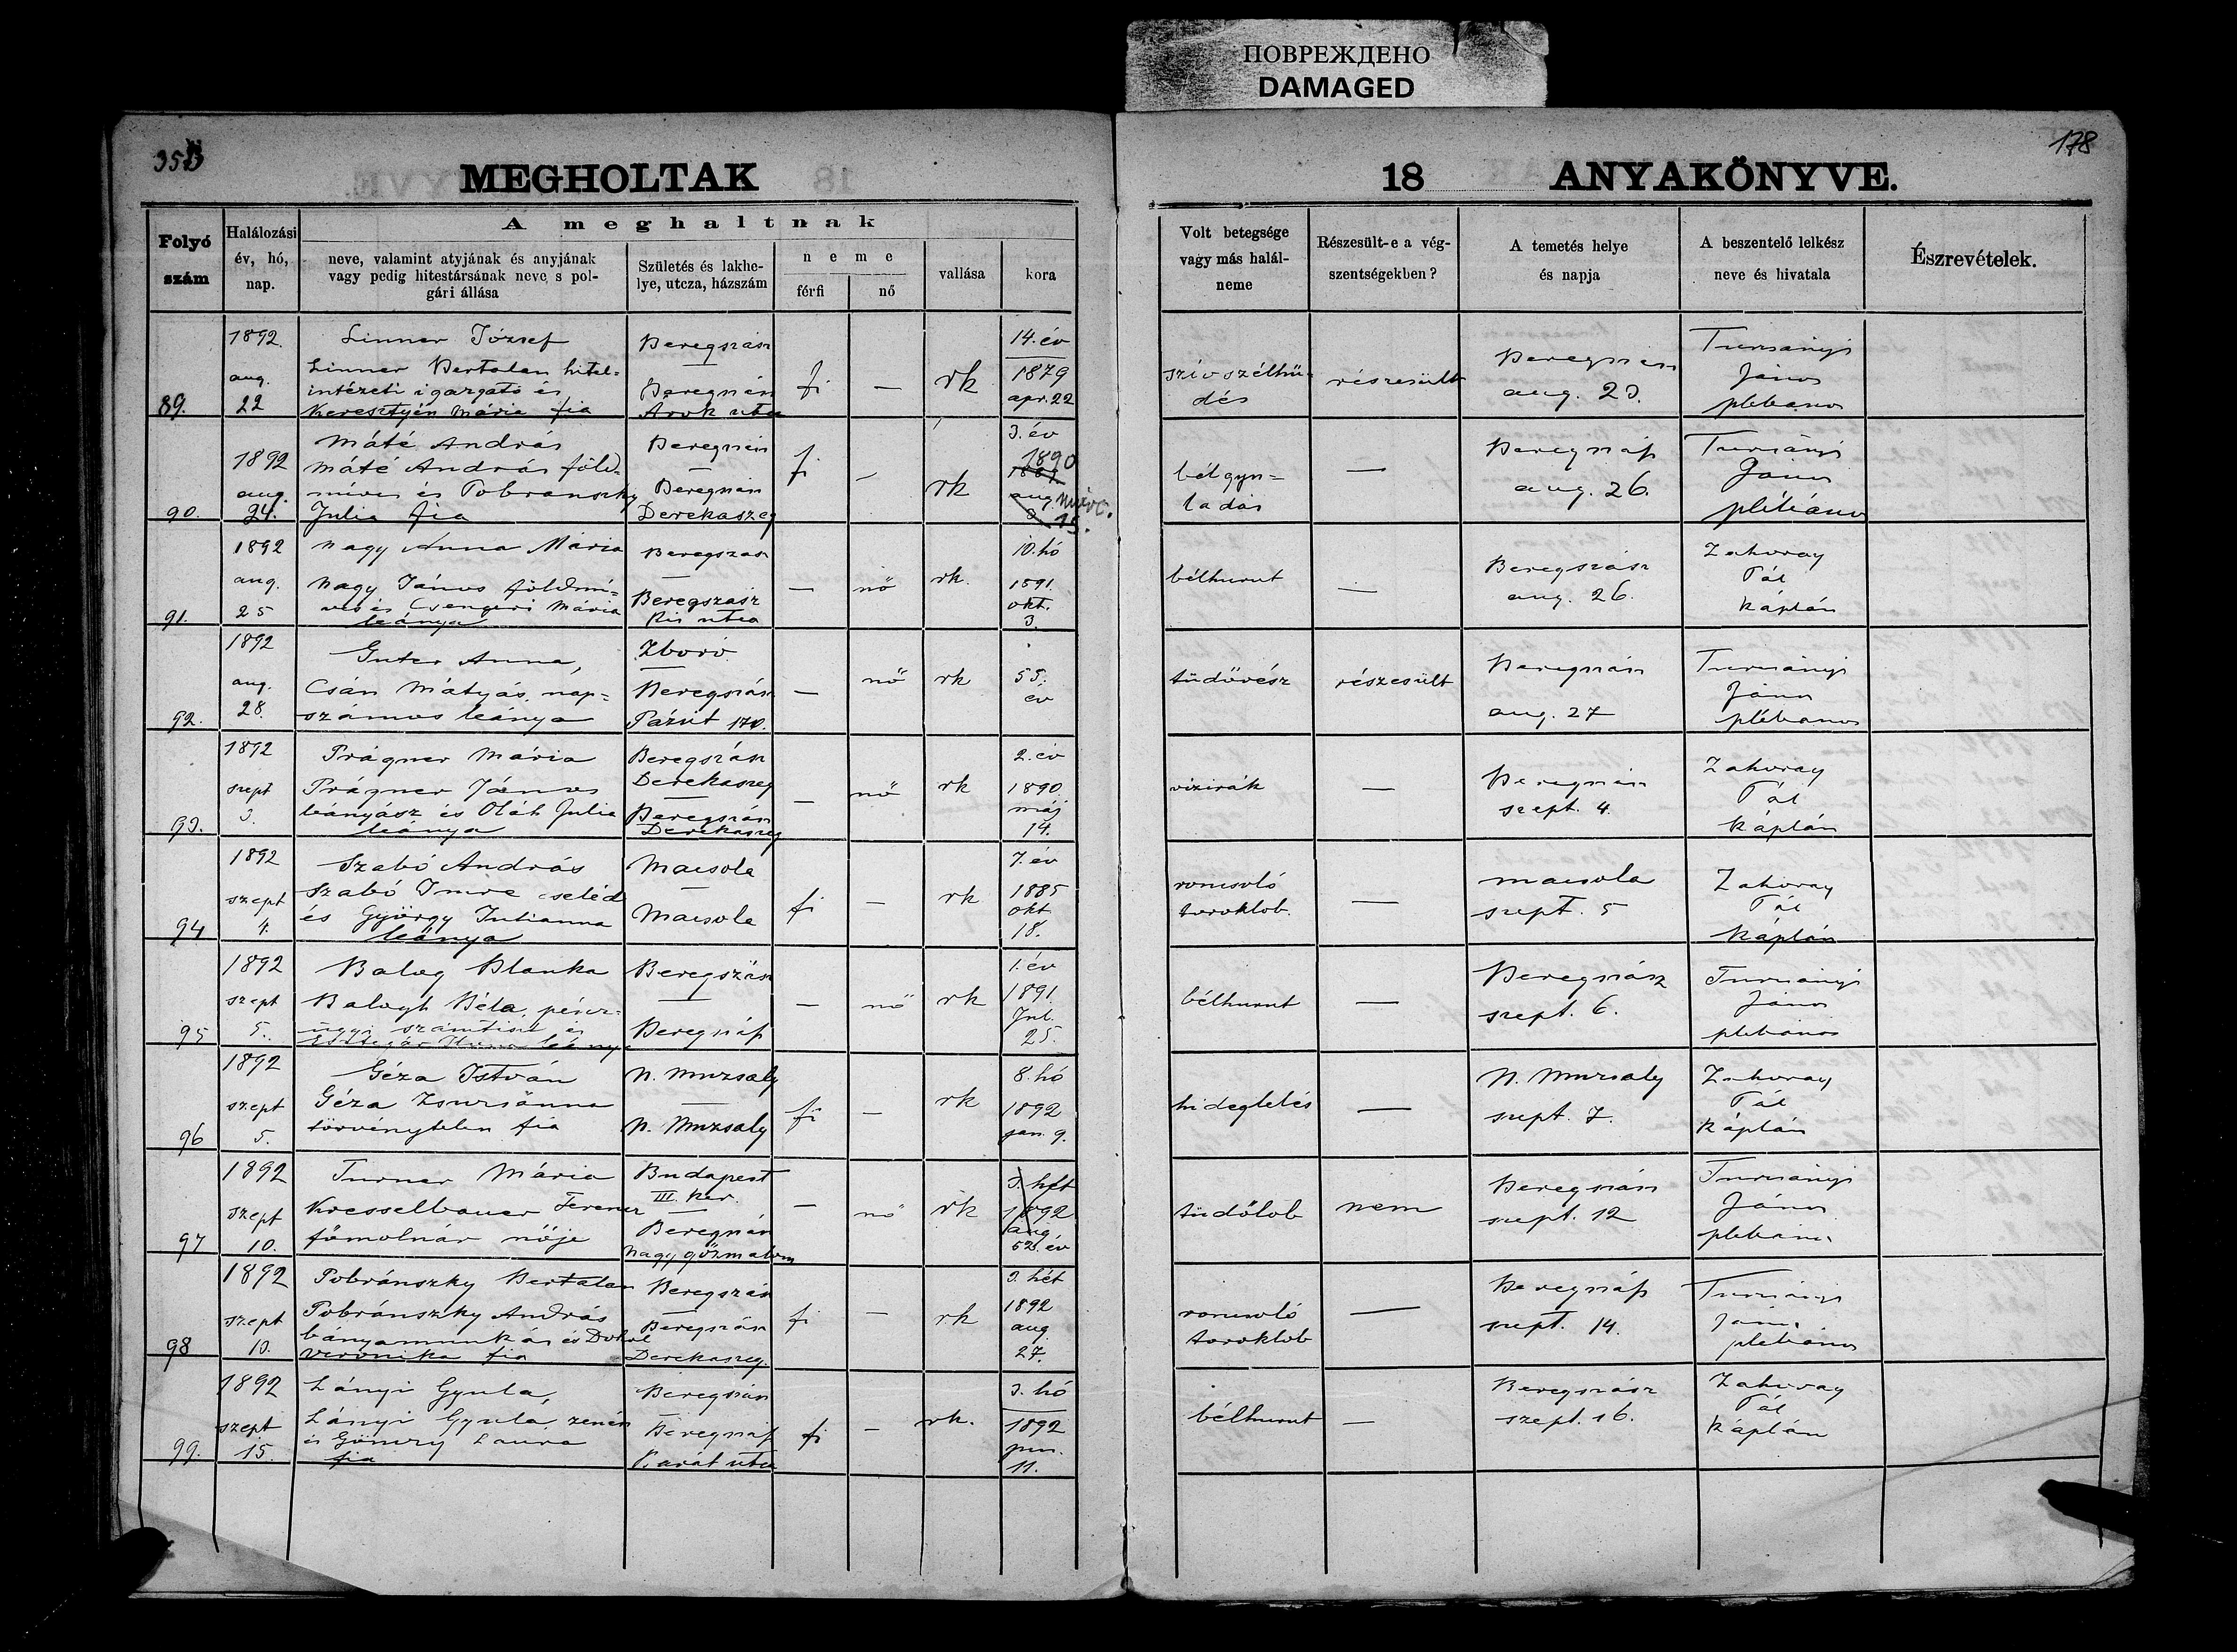 ПОВРЕЖДЕНО
DAMAGED
178
MEGHOLTAK
18 ANYAKÖNYVE.
Folyó szám
Halálozási év, hó, nap.
A meghaltnak
neve, valamint atyjának és anyjának
vagy pedig hitestársának neve s pol-
gári állása
Születés és lakhe-
lye, utcza, házszám
neme
férfi
nő
vallása
kora
Volt betegsége
vagy más halál-
neme
Részesült-e a vég-
szentségekben?
A temetés helye
és napja
A beszentelő lelkész
neve és hivatala
Észrevételek.
89.
1892.
aug.
22
Linner József
Linner Bertalan hitel-
intézeti igazgató és
Keresztyén Mária fia
Beregszász
—
Beregszász
Árok utca
fi
—
rk
14. év
1879
apr. 22
szívszélhü-
dés
részesült
Beregszász
aug. 23.
Turcsányi
János
plébanos
90.
1892
aug.
24.
Máté András
Máté András föld-
műves és Pobránszky
Julia fia
Beregszász
—
Beregszász
Derekaszeg
fi
—
rk
3. év
1890
1889
aug.
márc.
15.
bélgyu-
ladás
—
Beregszász
aug. 26.
Turcsányi
János
plébános
91.
1892
aug.
25
Nagy Anna Mária
Nagy János földmí-
ves és Csengeri Mária
leánya
Beregszász
—
Beregszász
Kis utca
—
nő
rk.
10. hó
1891.
okt.
3.
bélhurut
—
Beregszász
aug. 26.
Zahoray
Pál
káplán
92.
1892
aug.
28.
Guter Anna,
Csán Mátyás nap-
számos leánya
Zboró
—
Beregszász
Pázsit 170.
—
nő
rk
55.
év
tüdővész
részesült
Beregszász
aug. 27
Turcsányi
János
plébanos
93.
1892
szept
3.
Prágner Mária
Prágner János
bányász és Oláh Julia
leánya
Beregszász
Derekaszeg
—
Beregszász
Derekaszeg
—
nő
rk
2. év
1890.
máj
14.
vízirák
—
Beregszász
szept. 4.
Zahoray
Pál
káplán
94
1892
szept
4.
Szabó András
Szabó Imre cseléd
és György Julianna
leánya
Macsola
—
Macsola
fi
—
rk
7. év
1885
okt
18.
roncsoló
toroklob.
—
Macsola
szept. 5
Zahoray
Pál
káplán
95
1892
szept
5.
Balog Blanka
Balogh Béla, pénz-
ügyi számtiszt és
leánya
Beregszász
—
Beregszász
—
nő
rk
1. év
1891.
Jul.
25.
bélhurut
—
Beregszász
szept. 6.
Turcsányi
János
plebános
96
1892
szept
5.
Géza István
Géza Zsuzsánna
törvénytelen fia
N. Muzsaly
—
N. Muzsaly
fi
—
rk
8. hó
1892
jan. 9.
hideglelés
—
N. Muzsaly
szept. 7.
Zahoray
Pál
káplán
97
1892
szept
10.
Turner Mária
Kresselbauer Ferencz
főmolnár nője
Budapest
III. ker.
—
Beregszász
Nagy gőzmalom
—
nő
rk
3. hét
1892
aug
52. év
tüdőlob
nem
Beregszász
szept. 12
Turcsányi
János
plebános
98
1892
szept
13.
Pobránszky Bertalan
Pobránszky András
bányamunkás és
Veronika fia
Beregszász
—
Beregszász
Derekaszeg.
fi
—
rk
3. hét
1892
aug.
27.
roncsoló
toroklob
—
Beregszász
szept. 14.
Turcsányi
János
plébános
99.
1892
szept
15.
Lányi Gyula,
Lányi Gyula zenész
és Gönczy Laura
fia
Beregszász
—
Beregszász
Barát utca
fi
—
rk.
3. hó
1892
jun.
11.
bélhurut
—
Beregszász
szept. 16.
Zahoray
Pál
káplán